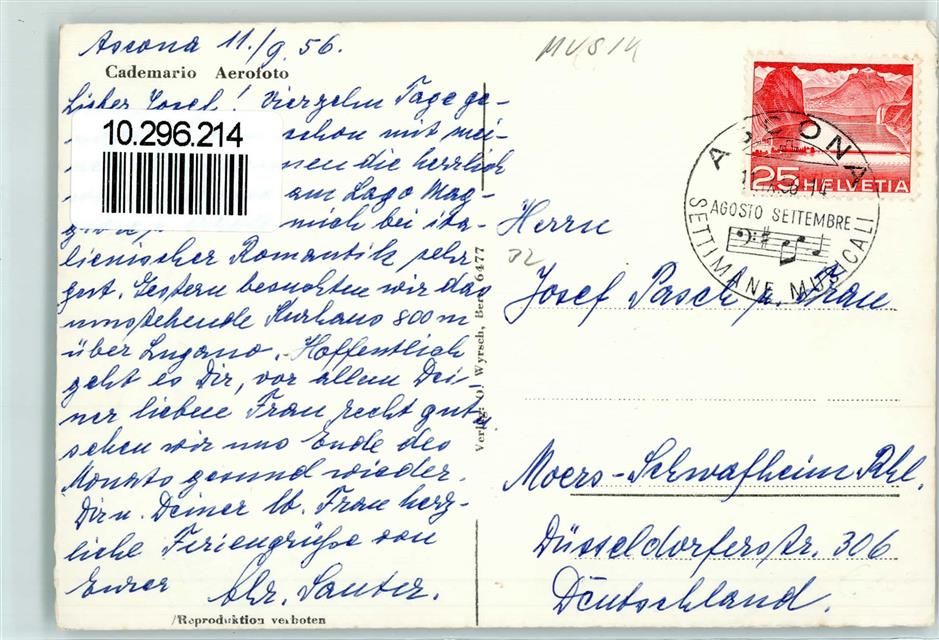 Ascona 11./9.56.
Cademario Aerofoto
Lieber Josef! Vierzehn Tage ge-
schon mit mei-
nen die herrlich
10.296.214
am Lago Mag-
mich bei ita-
lienischer Romantik sehr
gut. Gestern besuchten wir das
umstehende Kurhaus 800 m
über Lugano. Hoffentlich
geht es Dir, vor allem Dei-
ner lieben Frau recht gut,
sehen wir uns Ende des
Monats gesund wieder.
Dir u. Deiner lb. Frau herz-
liche Feriengrüße von
Eurer Chr. Sauter.
/Reproduktion verboten
Verlag: O. Wyrsch, Bern 6477
MUSIK
25 HELVETIA
ASCONA
AGOSTO SETTEMBRE
SETTIMANE MUSICALI
Herrn
32
Josef Pasch u. Frau
Moers-Schwafheim Rhl.
Düsseldorferstr. 306
Deutschland.